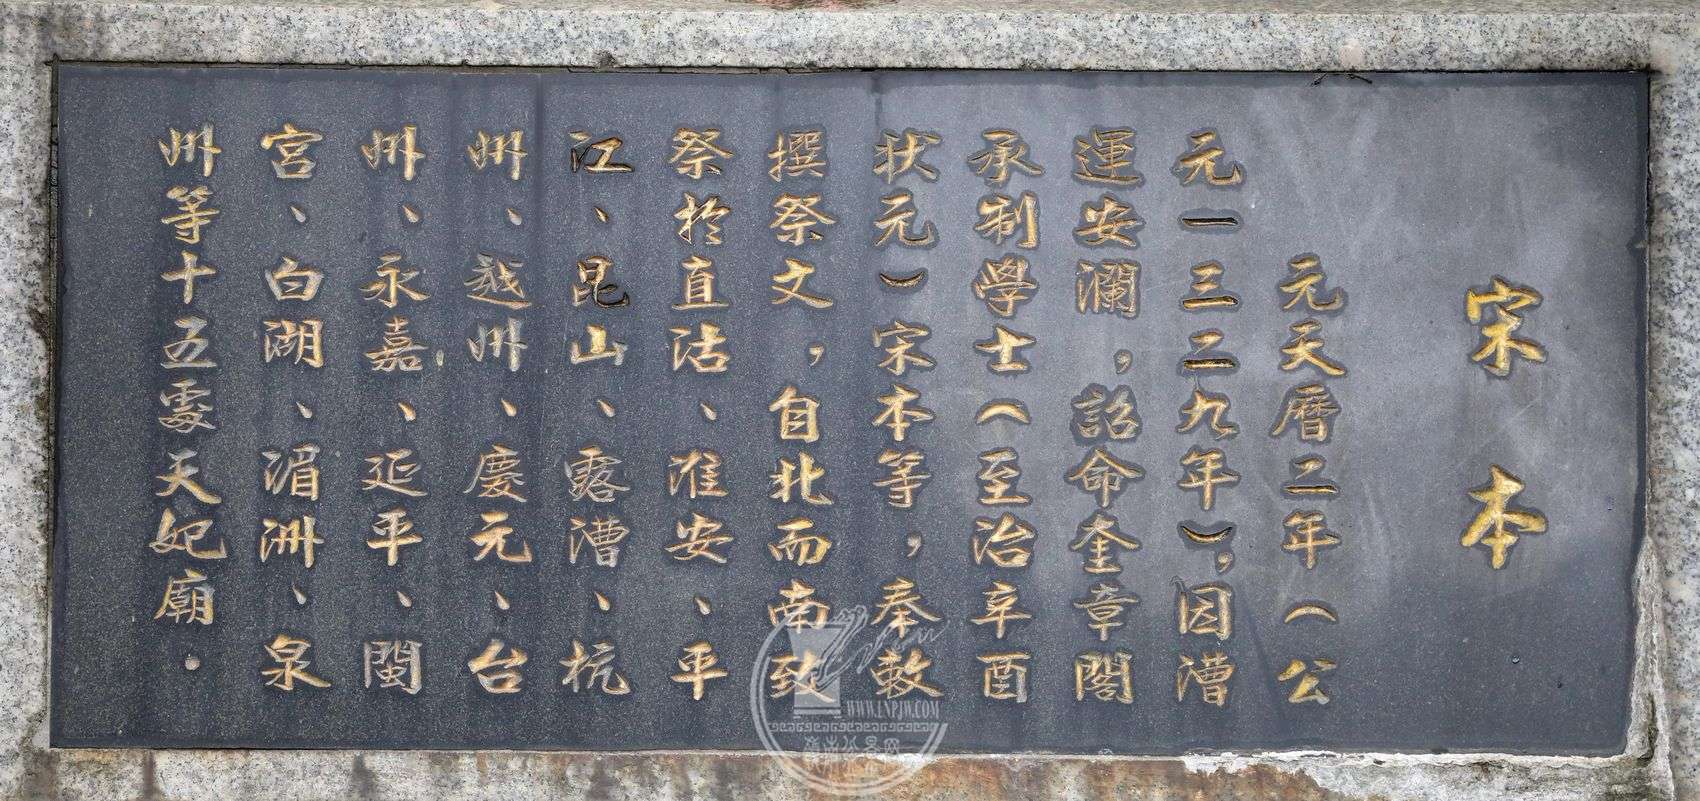 宋本
元天曆二年（公
元一三二九年），因漕
運安瀾，詔命奎章閣
承制學士（至治辛酉
狀元）宋本等，奉敕
撰祭文，自北而南致
祭於直沽、淮安、平
江、昆山、露漕、杭
州、越州、慶元、台
州、永嘉、延平、閩
宮、白湖、湄洲、泉
州等十五處天妃廟．
WWW.LNPJW.COM